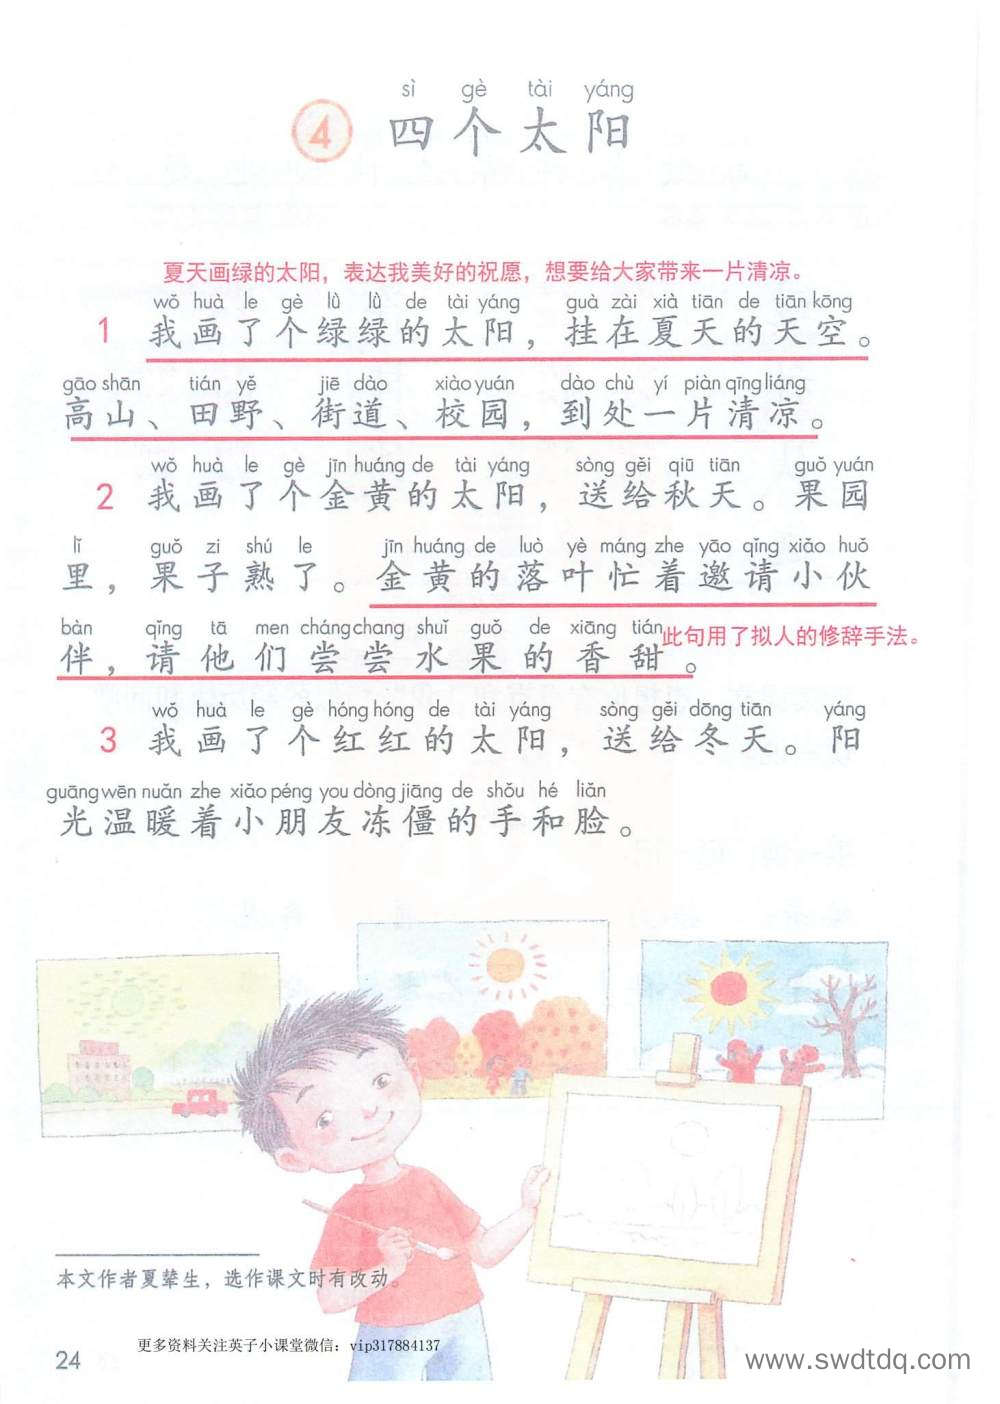 sì gè tài yáng
4 四个太阳
夏天画绿的太阳，表达我美好的祝愿，想要给大家带来一片清凉。
wǒ huà le gè lǜ lǜ de tài yáng guà zài xià tiān de tiān kōng
1 我画了个绿绿的太阳，挂在夏天的天空。
gāo shān tián yě jiē dào xiào yuán dào chù yí piàn qīng liáng
高山、田野、街道、校园，到处一片清凉。
wǒ huà le gè jīn huáng de tài yáng sòng gěi qiū tiān guǒ yuán
2 我画了个金黄的太阳，送给秋天。果园
lǐ guǒ zi shú le jīn huáng de luò yè máng zhe yāo qǐng xiǎo huǒ
里，果子熟了。金黄的落叶忙着邀请小伙
bàn qǐng tā men cháng chang shuǐ guǒ de xiāng tián
伴，请他们尝尝水果的香甜。此句用了拟人的修辞手法。
wǒ huà le gè hóng hóng de tài yáng sòng gěi dōng tiān yáng
3 我画了个红红的太阳，送给冬天。阳
guāng wēn nuǎn zhe xiǎo péng you dòng jiāng de shǒu hé liǎn
光温暖着小朋友冻僵的手和脸。
本文作者夏辇生，选作课文时有改动。
更多资料关注英子小课堂微信：vip317884137
24
www.swdtdq.com